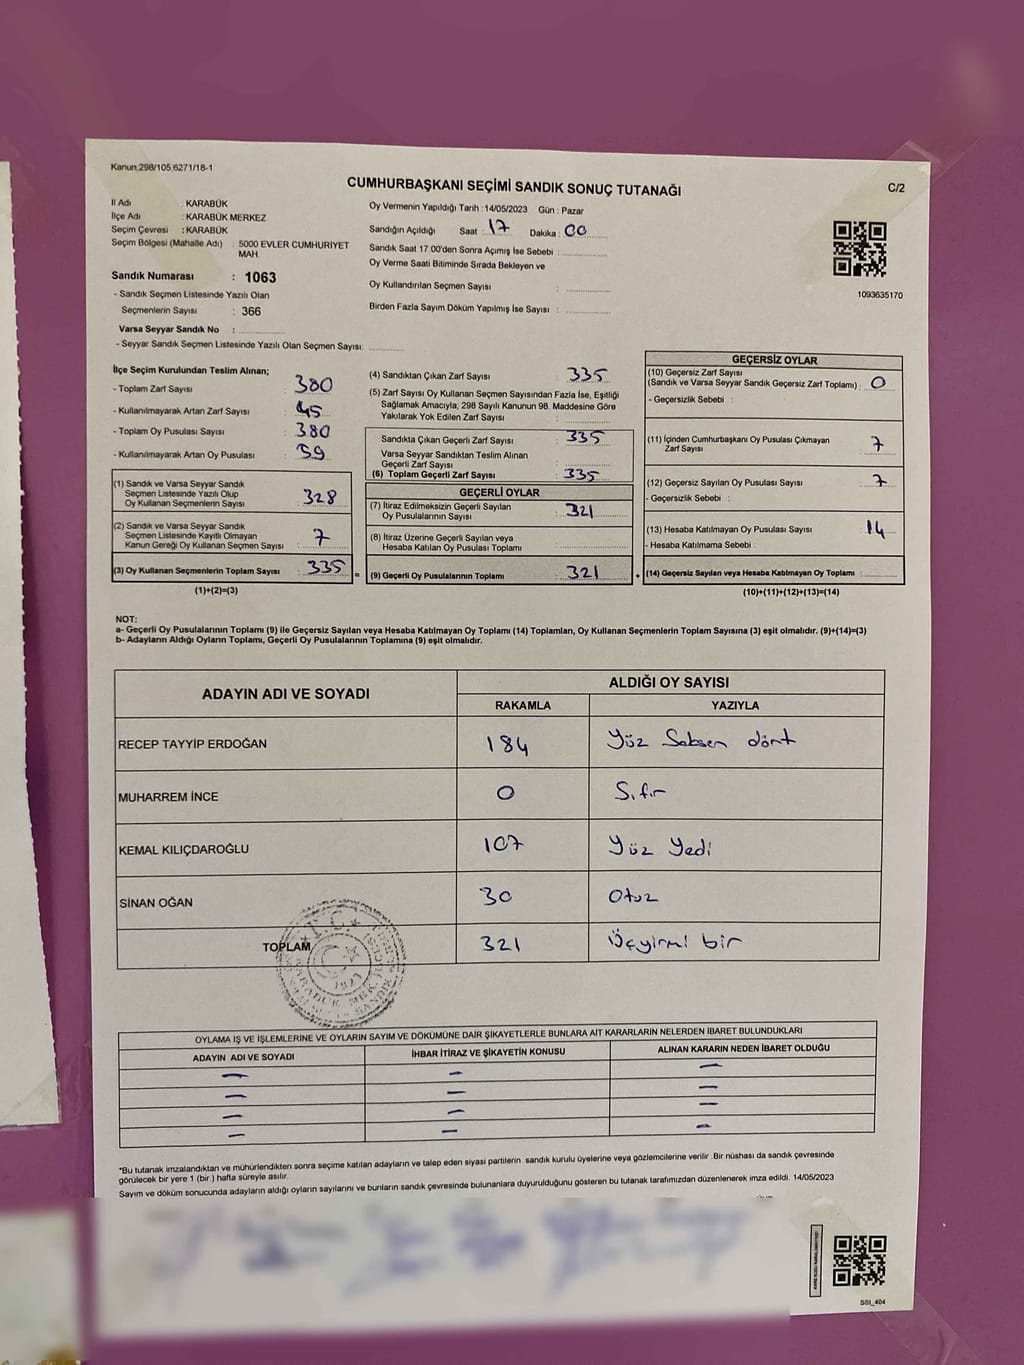 Kanun:298/105,6271/18-1
CUMHURBAŞKANI SEÇİMİ SANDIK SONUÇ TUTANAĞI
C/2
İl Adı : KARABÜK
İlçe Adı : KARABÜK MERKEZ
Seçim Çevresi : KARABÜK
Seçim Bölgesi (Mahalle Adı) : 5000 EVLER CUMHURİYET
MAH.
Sandık Numarası : 1063
- Sandık Seçmen Listesinde Yazılı Olan
Seçmenlerin Sayısı : 366
Varsa Seyyar Sandık No :
- Seyyar Sandık Seçmen Listesinde Yazılı Olan Seçmen Sayısı:
Oy Vermenin Yapıldığı Tarih :14/05/2023 Gün : Pazar
Sandığın Açıldığı Saat 17 Dakika 00
Sandık Saat 17:00'den Sonra Açımış İse Sebebi :
Oy Verme Saati Bitiminde Sırada Bekleyen ve
Oy Kullandırılan Seçmen Sayısı :
Birden Fazla Sayım Döküm Yapılmış İse Sayısı :
1093635170
İlçe Seçim Kurulundan Teslim Alınan;
- Toplam Zarf Sayısı : 380
- Kullanılmayarak Artan Zarf Sayısı : 45
- Toplam Oy Pusulası Sayısı : 380
- Kullanılmayarak Artan Oy Pusulası : 59
(1) Sandık ve Varsa Seyyar Sandık
Seçmen Listesinde Yazılı Olup
Oy Kullanan Seçmenlerin Sayısı : 328
(2) Sandık ve Varsa Seyyar Sandık
Seçmen Listesinde Kayıtlı Olmayan
Kanun Gereği Oy Kullanan Seçmen Sayısı : 7
(3) Oy Kullanan Seçmenlerin Toplam Sayısı : 335
(1)+(2)=(3)
=
(4) Sandıktan Çıkan Zarf Sayısı : 335
(5) Zarf Sayısı Oy Kullanan Seçmen Sayısından Fazla İse, Eşitliği
Sağlamak Amacıyla; 298 Sayılı Kanunun 98. Maddesine Göre
Yakılarak Yok Edilen Zarf Sayısı :
Sandıkta Çıkan Geçerli Zarf Sayısı : 335
Varsa Seyyar Sandıktan Teslim Alınan
Geçerli Zarf Sayısı :
(6) Toplam Geçerli Zarf Sayısı : 335
GEÇERLİ OYLAR
(7) İtiraz Edilmeksizin Geçerli Sayılan
Oy Pusulalarının Sayısı : 321
(8) İtiraz Üzerine Geçerli Sayılan veya
Hesaba Katılan Oy Pusulası Toplamı :
(9) Geçerli Oy Pusulalarının Toplamı : 321
+
GEÇERSİZ OYLAR
(10) Geçersiz Zarf Sayısı
(Sandık ve Varsa Seyyar Sandık Geçersiz Zarf Toplamı) : 0
- Geçersizlik Sebebi :
(11) İçinden Cumhurbaşkanı Oy Pusulası Çıkmayan
Zarf Sayısı : 7
(12) Geçersiz Sayılan Oy Pusulası Sayısı : 7
- Geçersizlik Sebebi :
(13) Hesaba Katılmayan Oy Pusulası Sayısı : 14
- Hesaba Katılmama Sebebi :
(14) Geçersiz Sayılan veya Hesaba Katılmayan Oy Toplamı :
(10)+(11)+(12)+(13)=(14)
NOT:
a- Geçerli Oy Pusulalarının Toplamı (9) ile Geçersiz Sayılan veya Hesaba Katılmayan Oy Toplamı (14) Toplamları, Oy Kullanan Seçmenlerin Toplam Sayısına (3) eşit olmalıdır. (9)+(14)=(3)
b- Adayların Aldığı Oyların Toplamı, Geçerli Oy Pusulalarının Toplamına (9) eşit olmalıdır.
ADAYIN ADI VE SOYADI
ALDIĞI OY SAYISI
RAKAMLA YAZIYLA
RECEP TAYYİP ERDOĞAN 184 Yüz Seksen dört
MUHARREM İNCE 0 Sıfır
KEMAL KILIÇDAROĞLU 107 Yüz Yedi
SİNAN OĞAN 30 Otuz
TOPLAM 321 Üçyirmi bir
T.C.
1923
OYLAMA İŞ VE İŞLEMLERİNE VE OYLARIN SAYIM VE DÖKÜMÜNE DAİR ŞİKAYETLERLE BUNLARA AİT KARARLARIN NELERDEN İBARET BULUNDUKLARI
ADAYIN ADI VE SOYADI İHBAR İTİRAZ VE ŞİKAYETİN KONUSU ALINAN KARARIN NEDEN İBARET OLDUĞU
— — —
— — —
— — —
— — —
*Bu tutanak imzalandıktan ve mühürlendikten sonra seçime katılan adayların ve talep eden siyasi partilerin sandık kurulu üyelerine veya gözlemcilerine verilir. Bir nüshası da sandık çevresinde
görülecek bir yere 1 (bir) hafta süreyle asılır.
Sayım ve döküm sonucunda adayların aldığı oyların sayılarını ve bunların sandık çevresinde bulunanlara duyurulduğunu gösteren bu tutanak tarafımızdan düzenlenerek imza edildi. 14/05/2023
SSI_404